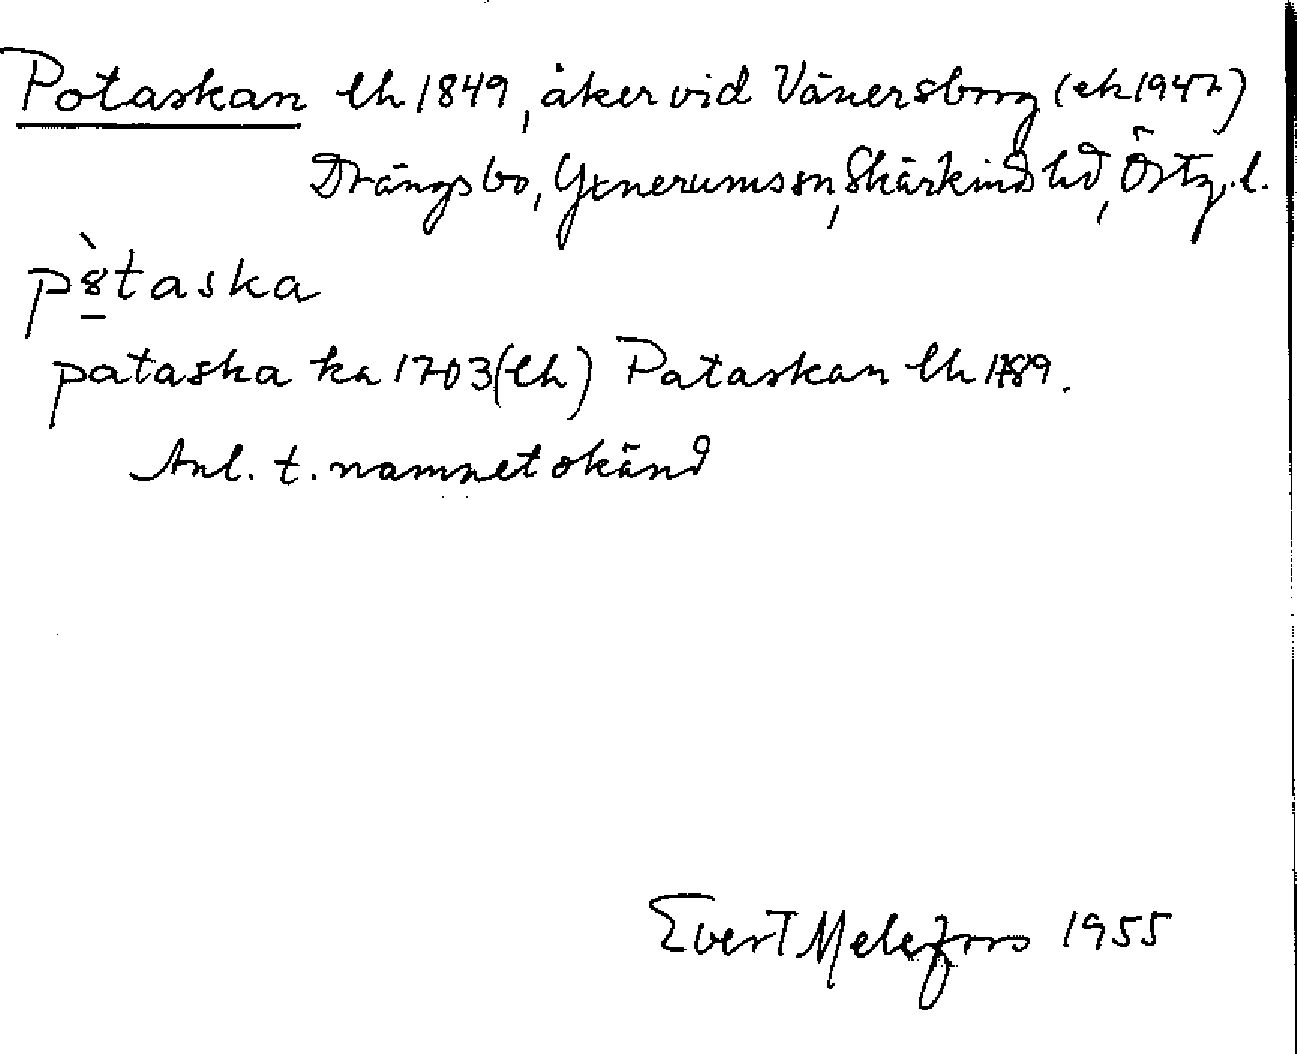 Potaskan lh 1849, åker vid Vänersborg (ek 1947)
Drängsbo, Yxnerums sn, Skärkinds hd, Östg. l.
p8̀taska
pataska ka 1703 (lh) Pataskan lh 1789.
Anl. t. namnet okänd
Evert Melefors 1955